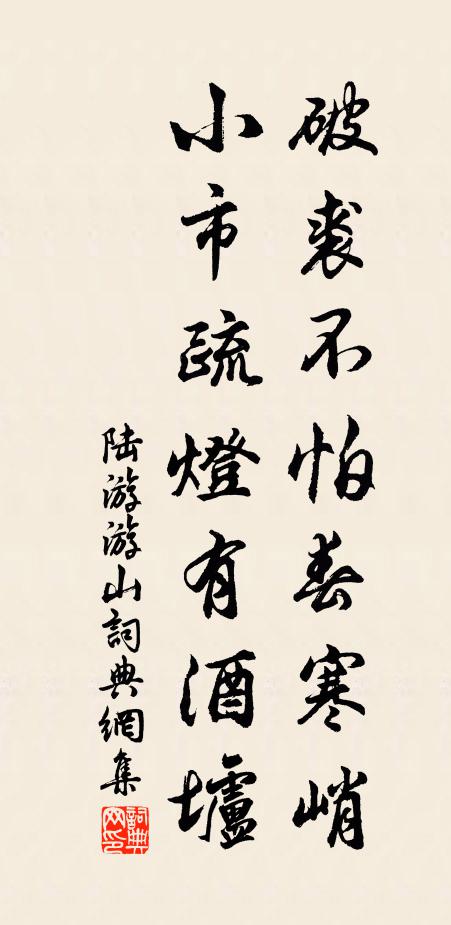 破裘不怕春寒峭
小市疏燈有酒壚
陆游游山詞典網集
詞典網印